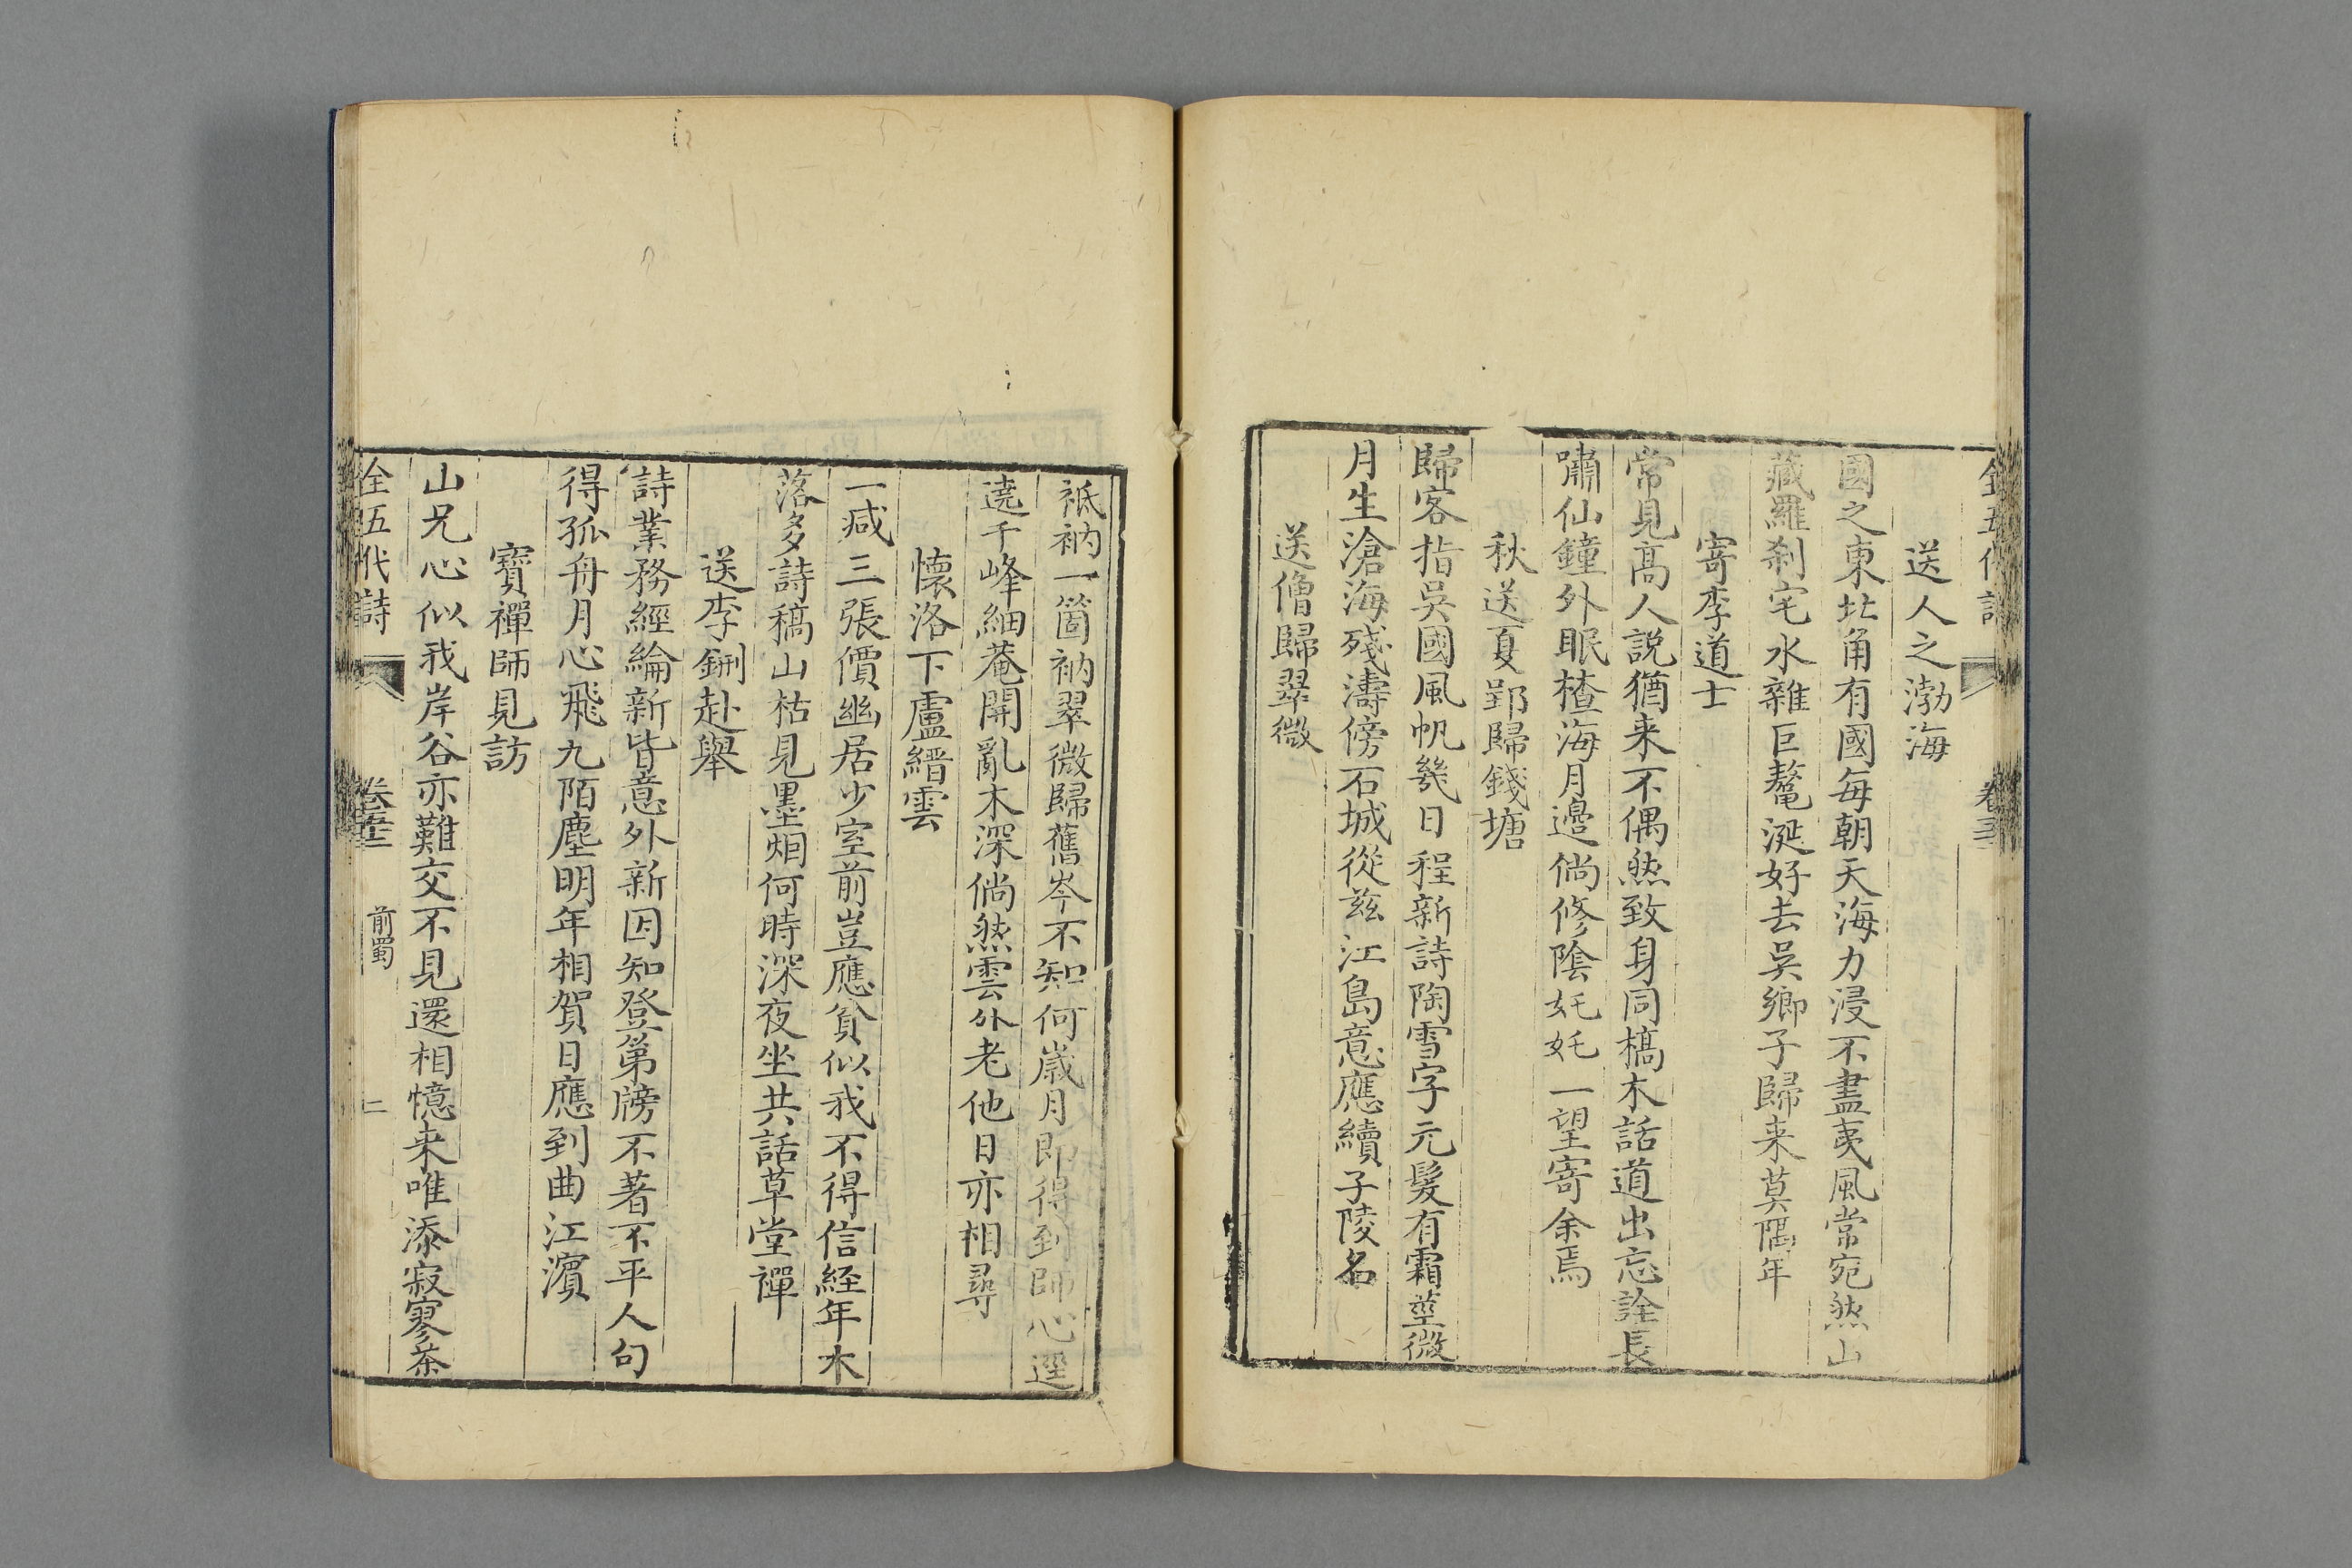 送人之渤海
國之東北角有國每朝天海力浸不盡夷風常宛然山
藏羅刹宅水雜巨鼇涎好去吳鄉子歸来莫隔年
寄李道士
常見高人説猶来不偶然致身同槁木話道出忘詮長
嘯仙鐘外眠楂海月邊倘修陰姹姹一望寄余焉
秋送夏郢歸錢塘
歸客指吳國風帆幾日程新詩陶雪字元髮有霜莖微
月生滄海殘濤傍石城從兹江島意應續子陵名
送僧歸翠微
衹衲一箇衲翠微歸舊岑不知何歳月即得到師心逕
遶千峰細菴開亂木深倘然雲外老他日亦相尋
懷洛下盧縉雲
一減三張價幽居少室前豈應貧似我不得信経年木
落多詩稿山枯見墨烟何時深夜坐共話草堂禪
送李鉶赴舉
詩業務經綸新皆意外新因知登第牓不著不平人句
得孤舟月心飛九陌塵明年相賀日應到曲江濵
寶禪師見訪
山兄心似我岸谷亦難交不見還相憶来唯添寂寥茶
全五代詩
前蜀
二